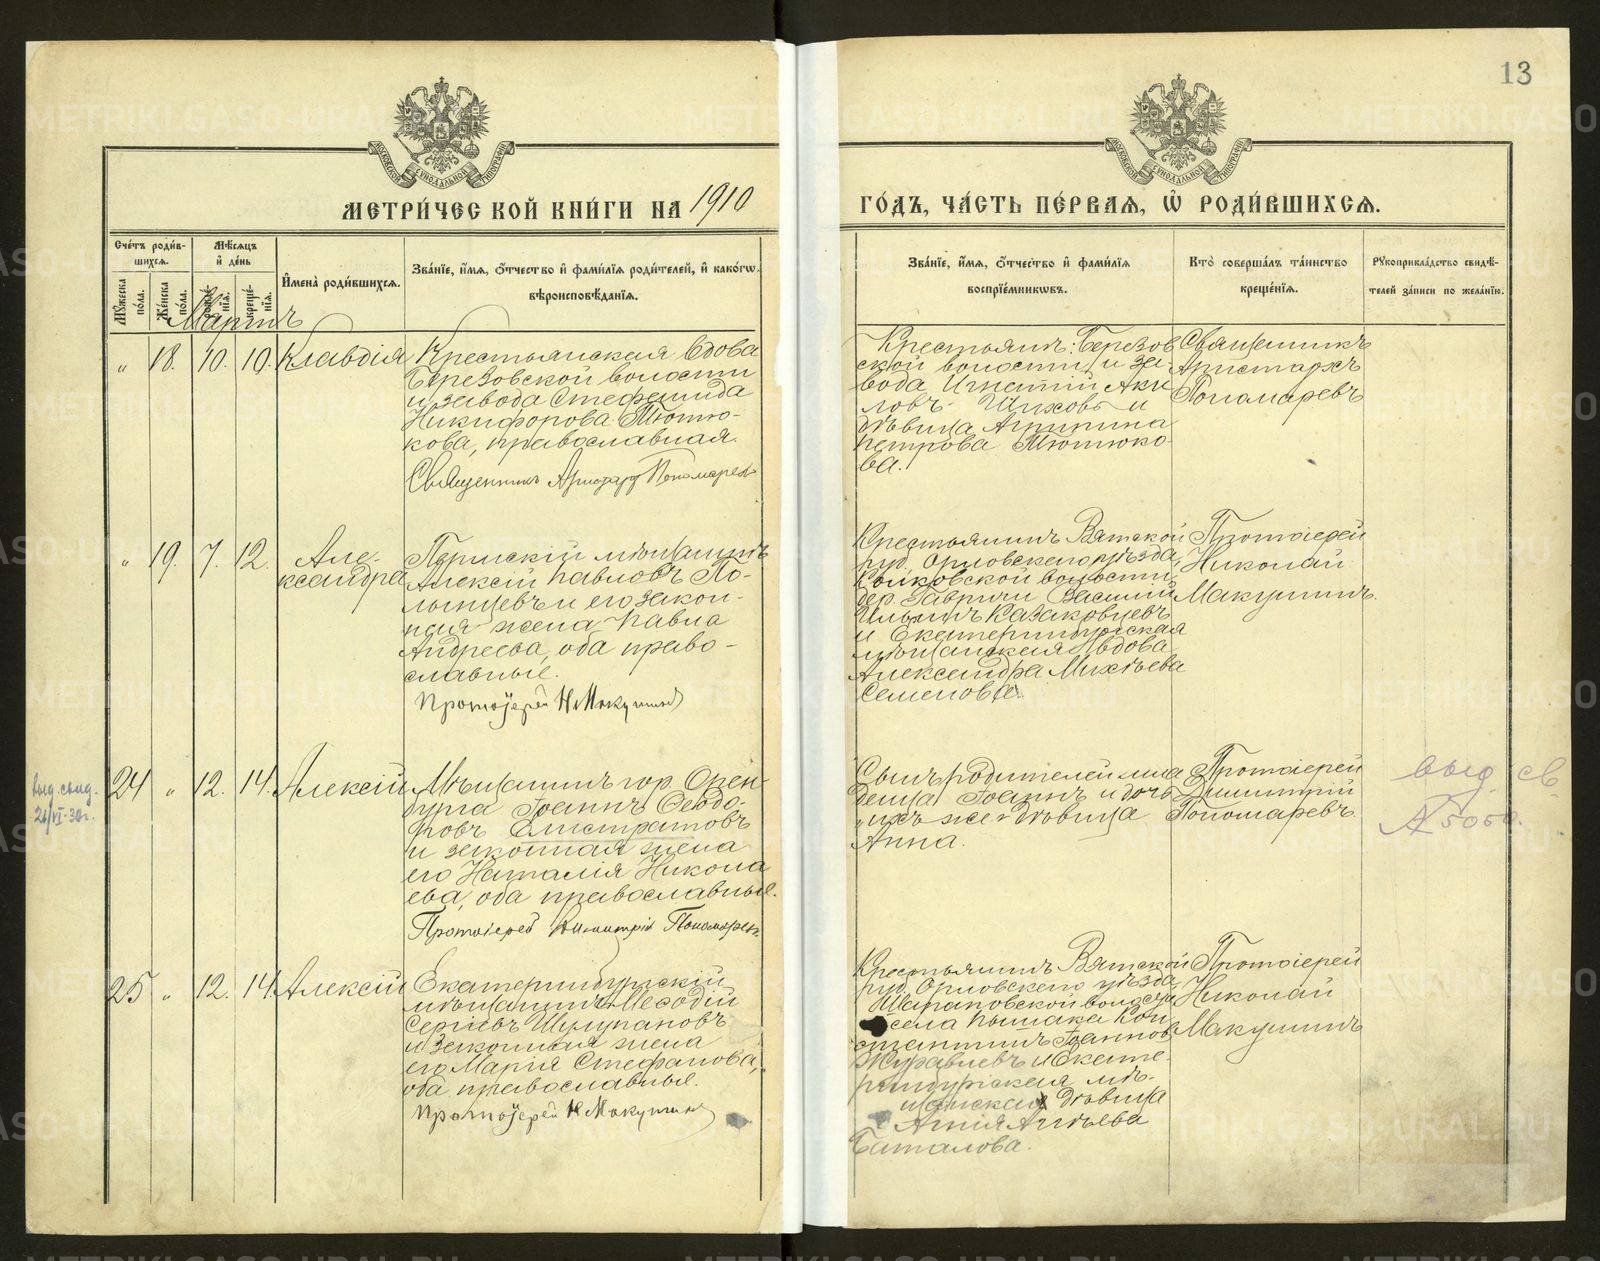 13
МЕТРИ́ЧЕСКОЙ КНИ́ГИ НА 1910
ГО́ДЪ, ЧА́СТЬ ПЕ́РВАЯ, Ѡ҆ РОДИ́ВШИХСЯ.
Сче́тъ роди́в-
шихся.
Мꙋ́жеска по́ла.
Же́нска по́ла.
Мѣ́сяцъ
и҆ де́нь
рожде́-
нїя.
креще́-
нїя.
И҆мена̀ роди́вшихся.
Зва́нїе, и҆́мя, ѻ҆́тчество и҆ фами́лїя роди́телей, и҆ како́гѡ
вѣроисповѣ́данїя.
Зва́нїе, и҆́мя, ѻ҆́тчество и҆ фами́лїя
воспрїе́мникѡвъ.
Кто̀ соверша́лъ та́инство
креще́нїя.
Рꙋкоприкла́дство свидѣ́-
телей за́писи по жела́нїю.
Мартъ
„ 18. 10. 10. Клавдія
Крестьянская вдова
Березовской волости
и завода Стефанида
Никифорова Тютю-
кова, православная.
Священникъ Аристархъ Пономаревъ
Крестьянинъ: Березов
ской волости и за-
вода Игнатій Аки
ловъ Шиховъ и
дѣвица Агрипина
Петрова Тютюко-
ва.
Священникъ
Аристархъ
Пономаревъ
„ 19. 7. 12. Але-
ксандра
Пермскій мѣщанинъ
Алексій Павловъ По-
лынцевъ и его закон-
ная жена Павла
Андреева, оба право-
славные.
Протоіерей Н Макушинъ
Крестьянинъ Вятской
губ. Орловскаго уѣзда,
волости,
дер. Гавричи Василій
Ильинъ Казаковцевъ
и Екатеринбургская
мѣщанская вдова
Александра Михѣева
Семенова.
Протоіерей
Николай
Макушинъ.
выд. свид.
24 „ 12. 14. Алексій
Мѣщанинъ гор. Орен-
бурга Іоаннъ Ѳеодо-
ровъ Елистратовъ
и законная жена
его Наталія Никола
ева, оба православные.
Протоіерей Димитрій Пономаревъ
Сынъ родителей мла
денца Іоаннъ и дочь
ихъ же дѣвица
Анна.
Протоіерей
Димитрій
Пономаревъ.
выд. св.
№ 5050.
25 „ 12. 14. Алексій
Екатеринбургскій
мѣщанинъ Меѳодій
Сергіевъ Шулупановъ
и законная жена
его Марія Стефанова,
оба православные.
Протоіерей Н Макушинъ
Крестьянинъ Вятской
губ. Орловскаго уѣзда
волости
села Пышака Кон
стантинъ Іоанновъ
Журавлевъ и Екате-
ринбургская мѣ-
щанская дѣвица
Баталова.
Протоіерей
Николай
Макушинъ